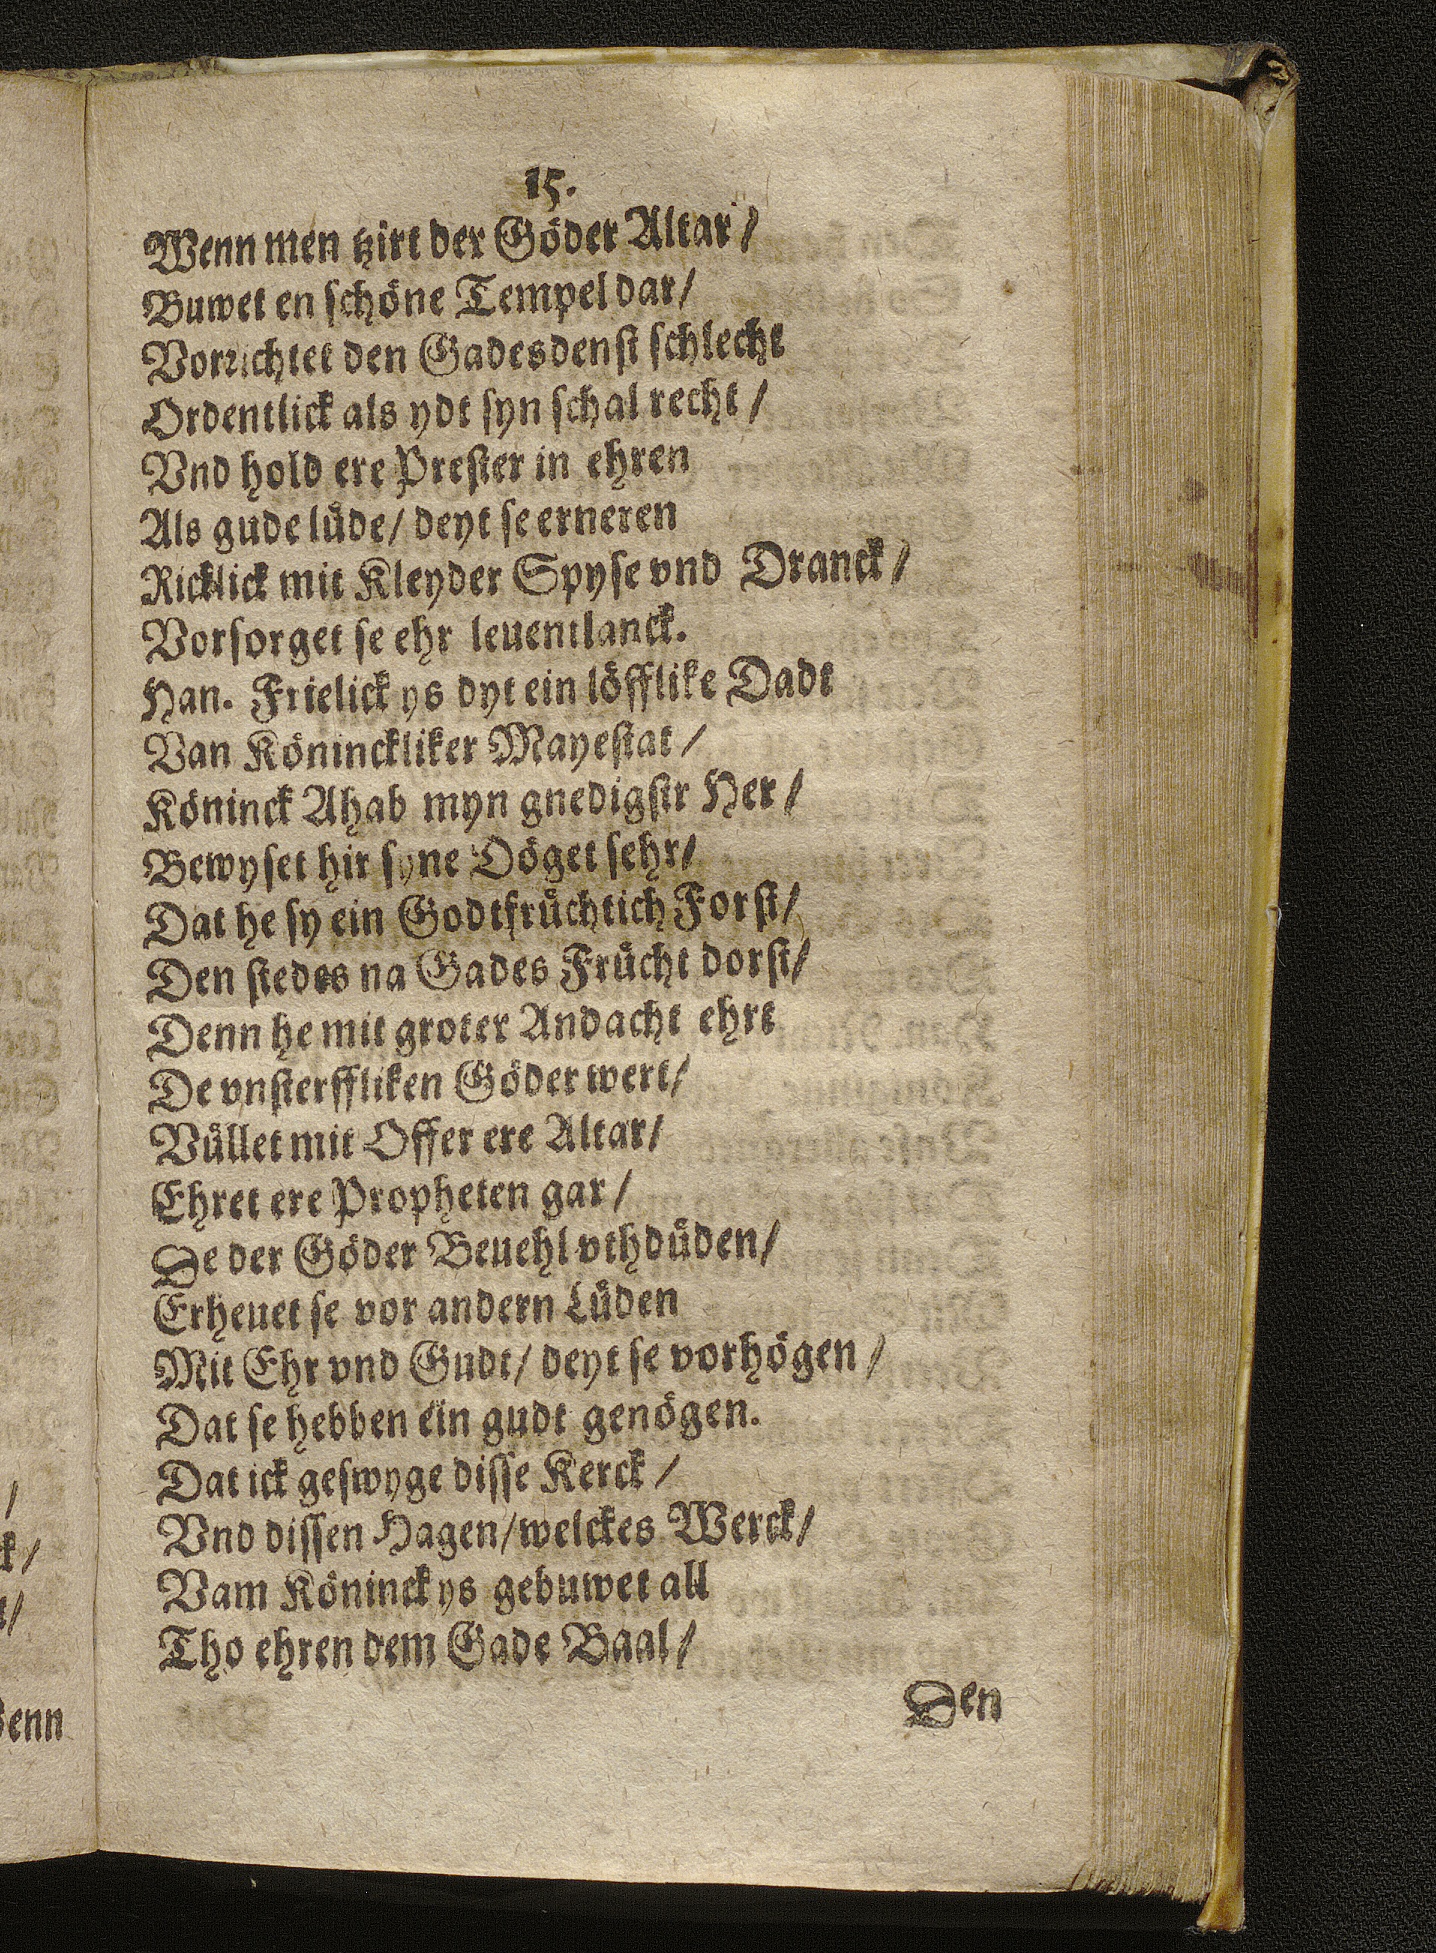 15.
Wenn men tzirt der Göder Altar /
Buwet en schöne Tempel dar /
Vorrichtet den Gadesdenst schlecht
Ordentlick als ydt syn schal recht /
Vnd hold ere Prester in ehren
Als gude lůde / deyt se erneren
Ricklick mit Kleyder Spyse vnd Dranck /
Vorsorget se ehr leuentlanck.
Han. Frielick ys dyt ein löfflike Dadt
Van Köninckliker Mayestat /
Köninck Ahab myn gnedigstr Her /
Bewyset hir syne Döget sehr /
Dat he sy ein Godtfrůchtich Forst /
Den stedes na Gades Frůcht dorst /
Denn he mit groter Andacht ehrt
De vnsterffliken Göder wert /
Vůllet mit Offer ere Altar /
Ehret ere Propheten gar /
De der Göder Beuehl vthdůden /
Erheuet se vor andern Lůden
Mit Ehr vnd Gudt / deyt se vorhögen /
Dat se hebben ein gudt genögen.
Dat ick geswyge disse Kerck /
Vnd dissen Hagen / welckes Werck /
Vam Köninck ys gebuwet all
Tho ehren dem Gade Baal /
Den